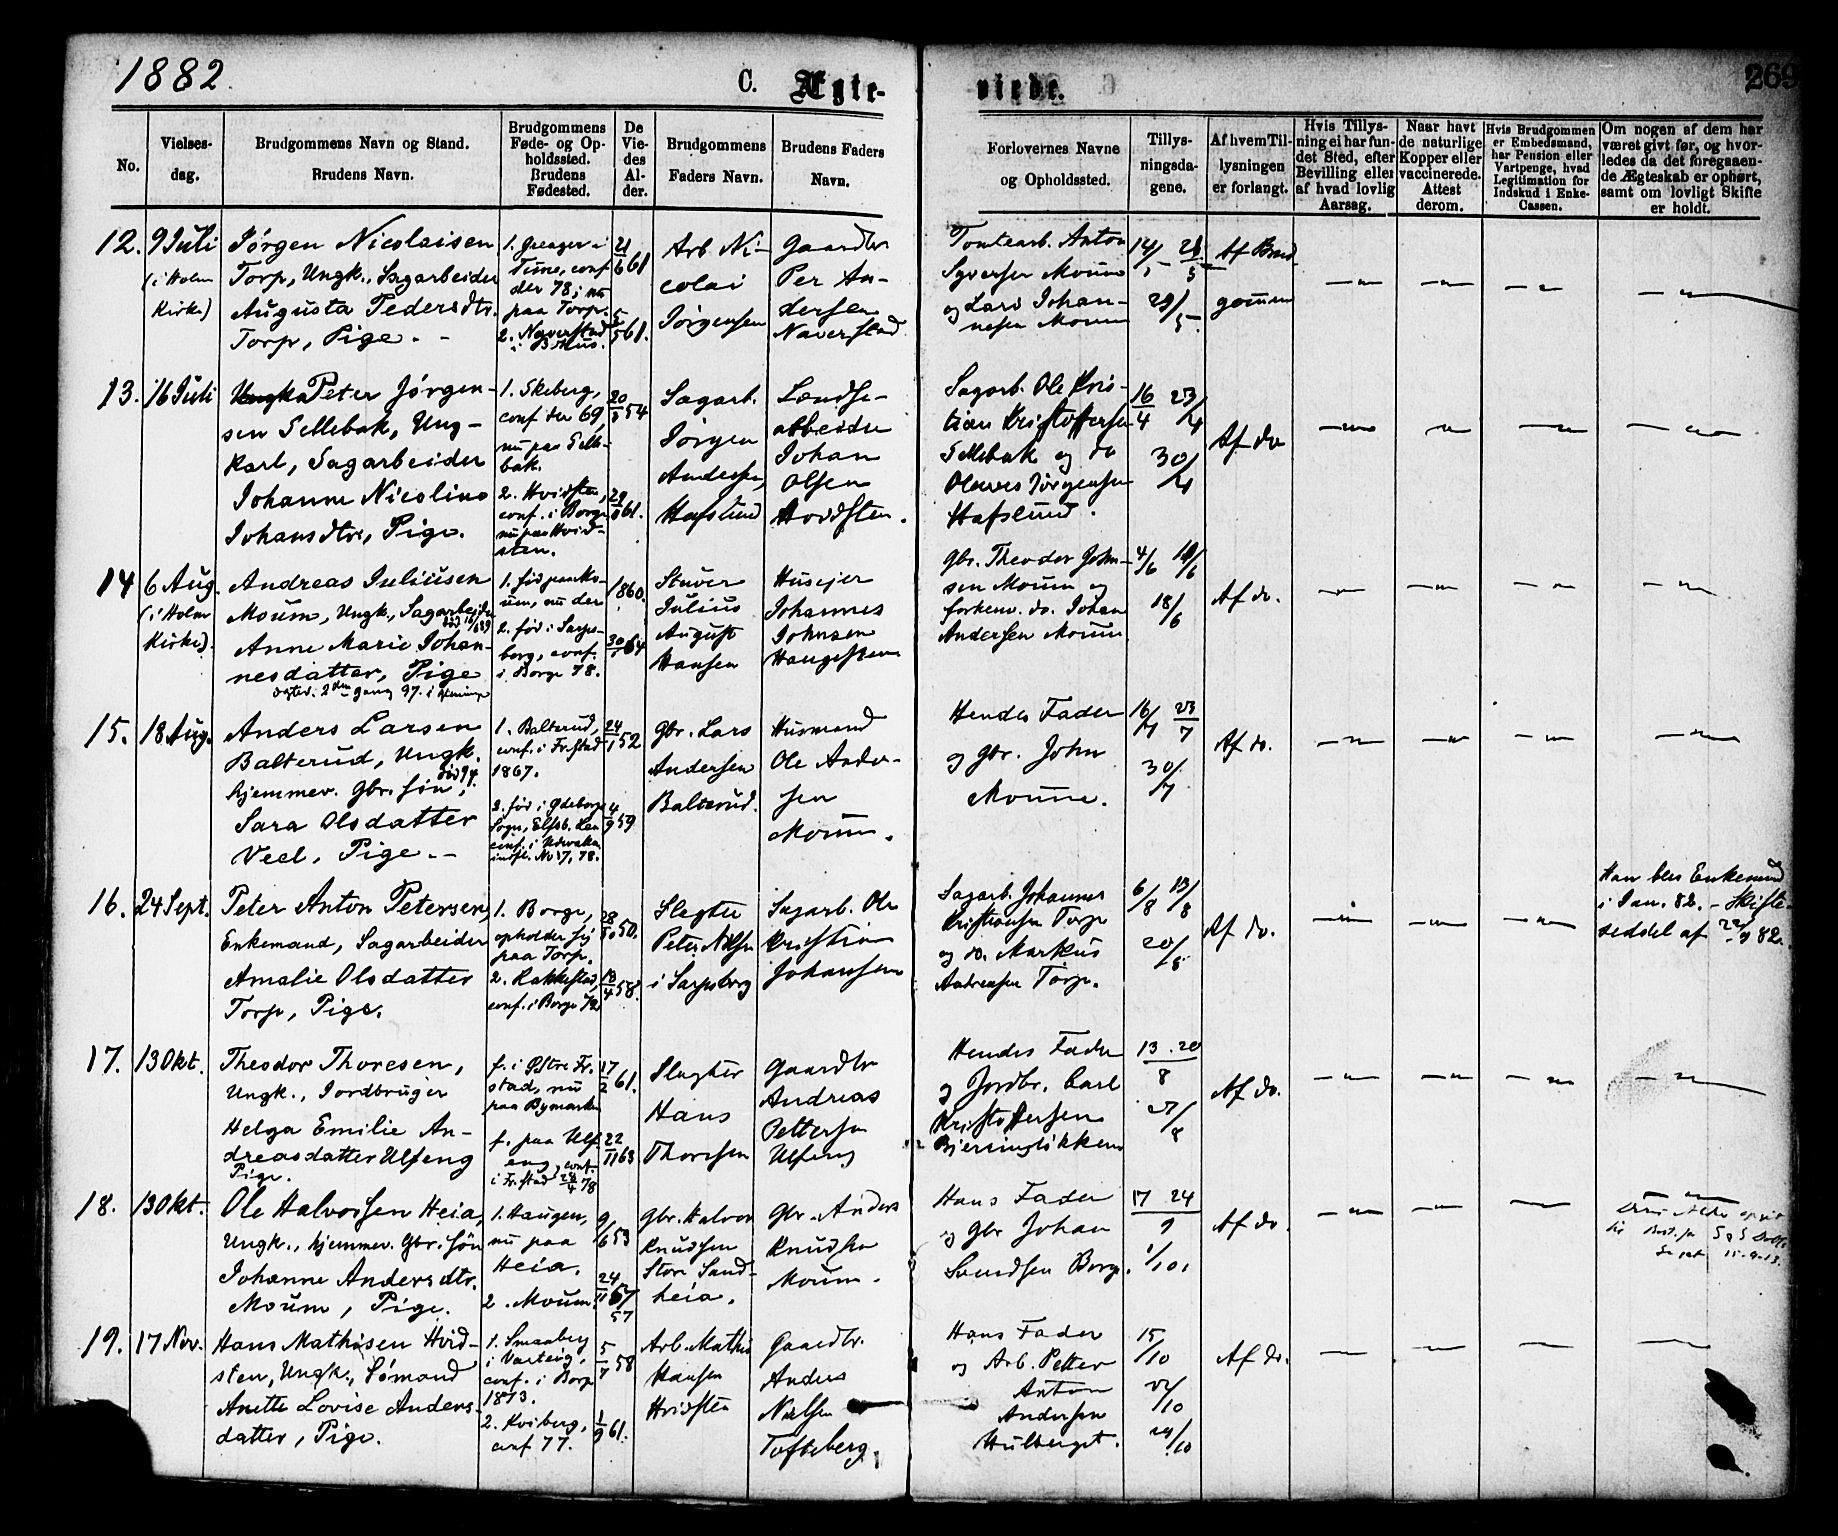 1882.
C. Ægte-
viede.
269
No.
Vielses-
dag.
Brudgommens Navn og Stand.
Brudens Navn.
Brudgommens
Føde- og Op-
holdssted.
Brudens
Fødested.
De
Vie-
des
Al-
der.
Brudgommens
Faders Navn.
Brudens Faders
Navn.
Forlovernes Navne
og Opholdssted.
Tillys-
ningsda-
gene.
Af hvem Til-
lysningen
er forlangt.
Hvis Tillys-
ning ei har fun-
det Sted, efter
Bevilling eller
af hvad lovlig
Aarsag.
Naar havt
de naturlige
Kopper eller
vaccinerede.
Attest
derom.
Hvis Brudgommen
er Embedsmand,
har Pension eller
Vartpenge, hvad
Legitimation for
Indskud i Enke-
Cassen.
Om nogen af dem har
været givt før, og hvor-
ledes da det foregaaen-
de Ægteskab er ophørt,
samt om lovligt Skifte
er holdt.
12. 9 Juli
(i Holm
Kirke)
Jørgen Nicolaisen
Torp, Ungk., Sagarbeider
Augusta Pedersdtr.
Torp, Pige.
1. Greager i
Tune, conf
der 78, nu
paa Torp.
2. Naverstad
i Bohus.
21/6 61
5/5 61.
Arb. Ni-
colai
Jørgensen
Gaardbr
Per An-
dersen
Naverstad
Tomtearb. Anton
Syversen Moum
og Lars Johan-
nesen Moum
14/5 28/5
29/5
Af Brud-
gommen
13. 16 Juli
Peter Jørgen-
sen Sellebak, Ung-
karl, Sagarbeider
Johanne Nicoline
Johansdtr, Pige.
1. Skeberg,
conf der 69,
nu paa Selle-
bak.
2. Hvidsten,
conf. i Borge
nu paa Hvid-
sten.
54
61.
Sagarb.
Jørgen
Andersen,
Hafslund
Landse-
arbeider
Johan
Olsen
Hvidsten.
Sagarb. Ole Kris-
tian Kristoffersen
Sellebak og do
Olaves Jørgensen
Hafslund.
16/4 23/4
30/4
Af do
14 6 Aug.
(i Holm
Kirke).
Andreas Juliusen
Moum, Ungk., Sagarbeider
Anne Marie Johan-
nesdatter, Pige
1. fød paa Mo-
um, nu der
2. fød i Sarps-
borg, conf.
i Borge 78.
1860.
64
Stuver
Julius
August
Hansen
Husejer
Johannes
Johnsen
Haugesten
Gbr. Theodor John-
sen Moum og
forhenv. do. Johan
Andersen Moum
4/6
18/6
Af do.
15. 18 Aug.
Anders Larsen
Balterud, Ungk.
hjemmev. Gbr. søn,
Sara Olsdatter
Veel, Pige.
1. Balterud,
conf. i Fr.stad
1867.
24/1 52
4/9 59
Gbr. Lars
Andersen
Balterud.
Husmand
Ole Ander-
sen
Moum.
Hendes Fader
og Gbr. John
Moum.
16/7 23/7
30/7
Af do.
16. 24 Sept.
Peter Anton Petersen,
Enkemand, Sagarbeider
Amalie Olsdatter
Torp, Pige.
1. Borge,
opholder sig
paa Torp.
2. Rakkestad,
conf. i Borge 72
50.
18/4 58.
Slagter
Peter Nilsen
i Sarpsborg
Sagarb. Ole
Kristian
Johansen
Sagarb. Johannes
Kristiansen Torp
og do. Markus
Andreasen Torp.
6/8 13/8
20/8
Af do.
Han blev Enkemand
i Jan. 82. - Skifte-
seddel af 82.
17. 13 Okt.
Theodor Thoresen,
Ungk., Jordbruger
Helga Emilie An-
dreasdatter Ulfeng
Pige.
f. i Østre Fr.
stad, nu
paa Bymarken
f. paa Ulf-
eng, conf.
i Fr.stad 78
17/2 61.
22/11 63
Slagter
Hans
Thoresen
Gaardbr
Andreas
Pettersen
Ulfeng
Hendes Fader
og Jordbr. Carl
Kristoffersen
Bjerringløkken
13. 20/8
27/8
Af do.
18. 13 Okt.
Ole Halvorsen Heia,
Ungk., hjemmev. Gbr. søn
Johanne Andersdtr.
Moum, Pige.
1. Haugen,
nu paa
Heia.
2. Moum.
9/6 53
24/11 57
57
Gbr. Halvor
Knudsen
Store Sand-
heia.
Gbr. Anders
Knudsen
Moum.
Hans Fader
og Gbr Johan
Svendsen Borge.
17 24/9
1/10.
Af do.
19. 17 Nov.
Hans Mathisen Hvid-
sten, Ungk., Sømand
Anette Lovise Anders-
datter, Pige.
1. Smaaberg
i Varteig,
conf. i Borge
1873.
2. Kviberg,
conf 77.
5/7 58
1/9 61.
Arb. Mathis
Hansen
Hvidsten
Gaardbr.
Anders
Nilsen
Tofteberg.
Hans Fader
og Arb. Petter
Anton
Andersen
Hulberget.
15/10
22/10
29/10
Af do.